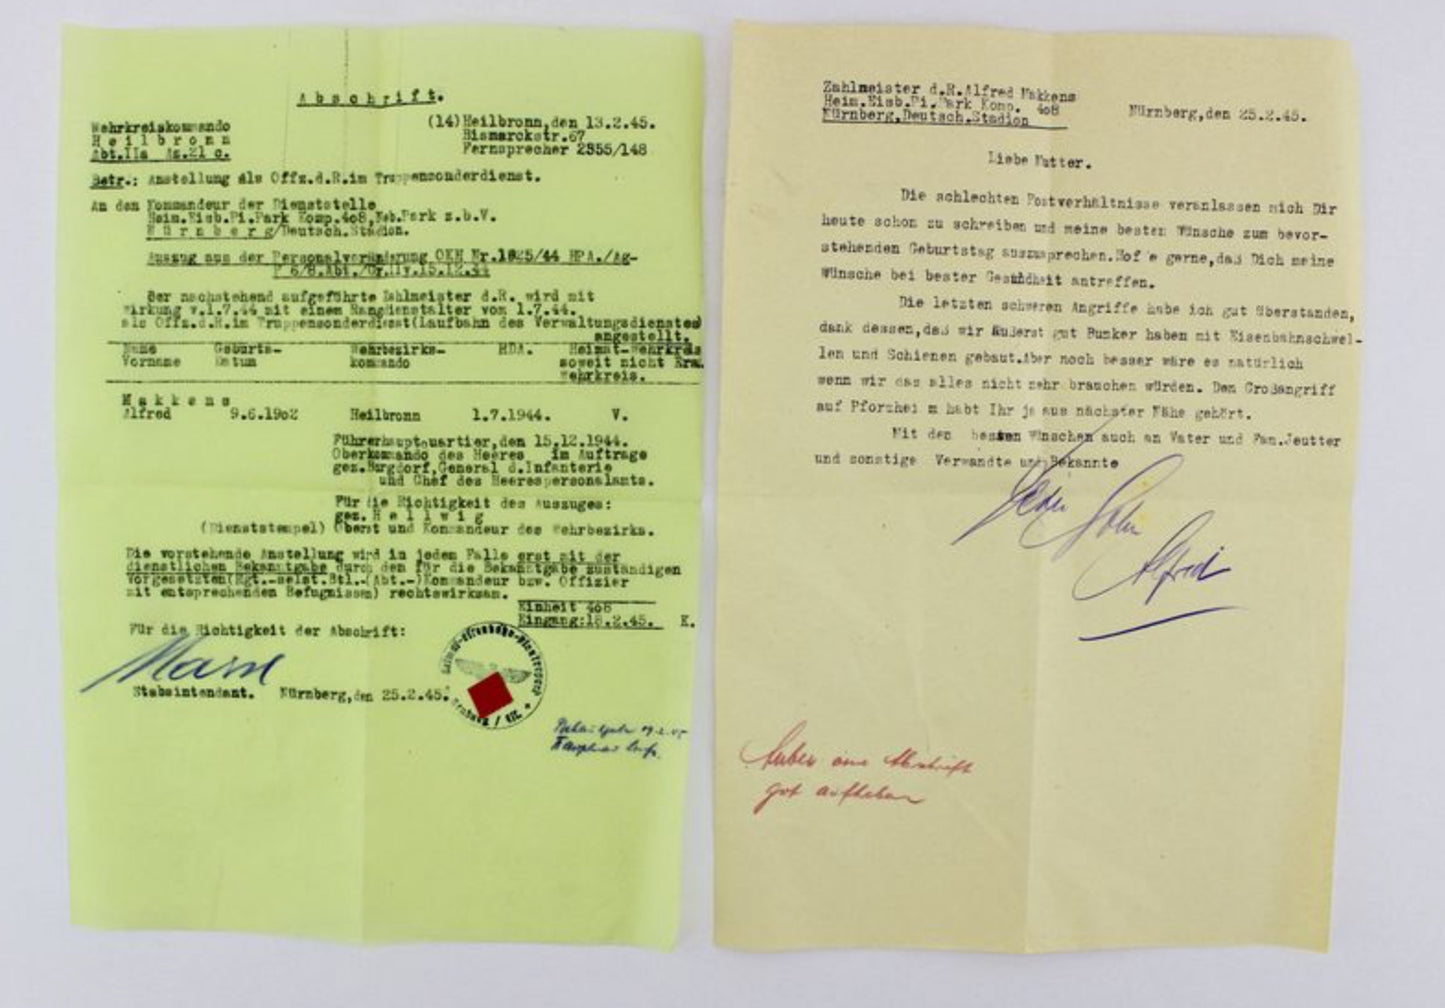 Abschrift.
Wehrkreiskommando
Heilbronn
Abt.IIa Az.21 c.
(14)Heilbronn,den 13.2.45.
Bismarckstr.67
Fernsprecher 2355/148
Betr.: Anstellung als Offz.d.R.im Truppensonderdienst.
An den Kommandeur der Dienststelle
Heim.Eisb.Pi.Park Komp.408,Neb.Park z.b.V.
Nürnberg/Deutsch.Stadion.
Auszug aus der Personalveränderung OKH Nr.1825/44 HPA./Ag-
P 6/8.Abt./
Der nachstehend aufgeführte Zahlmeister d.R. wird mit
Wirkung v.1.7.44 mit einem Rangdienstalter vom 1.7.44.
als Offz.d.R.im Truppensonderdienst(Laufbahn des Verwaltungsdienstes)
angestellt.
Name Geburts- Wehrbezirks- RDA. Heimat-Wehrkreis
Vorname Datum kommando soweit nicht Erm.
Wehrkreis.
Makkens
Alfred 9.6.19o2 Heilbronn 1.7.1944. V.
Führerhauptquartier,den 15.12.1944.
Oberkommando des Heeres im Auftrage
gez.Burgdorf,General d.Infanterie
und Chef des Heerespersonalamts.
Für die Richtigkeit des Auszuges:
gez.Hellwig
(Dienststempel) Oberst und Kommandeur des Wehrbezirks.
Die vorstehende Anstellung wird in jedem Falle erst mit der
dienstlichen Bekanntgabe durch den für die Bekanntgabe zuständigen
Vorgesetzten(Rgt.-selst.Btl.-(Abt.-)Kommandeur bzw. Offizier
mit entsprechenden Befugnissen) rechtswirksam.
Einheit 408
Eingang:18.2.45. K.
Für die Richtigkeit der Abschrift:
Stabsintendant. Nürnberg,den 25.2.45.
Zahlmeister d.R.Alfred Makkens
Heim.Eisb.Pi.Park Komp. 4o8
Nürnberg,Deutsch.Stadion
Nürnberg,den 25.2.45.
Liebe Mutter.
Die schlechten Postverhältnisse veranlassen mich Dir
heute schon zu schreiben und meine besten Wünsche zum bevor-
stehenden Geburtstag auszusprechen.Hof e gerne,daß Dich meine
Wünsche bei bester Gesundheit antreffen.
Die letzten schweren Angriffe habe ich gut überstanden,
dank dessen,daß wir äußerst gut Bunker haben mit Eisenbahnschwel-
len und Schienen gebaut.Aber noch besser wäre es natürlich
wenn wir das alles nicht mehr brauchen würden. Den Großangriff
auf Pforzhei m habt Ihr ja aus nächster Nähe gehört.
Mit den besten Wünschen auch an Vater und Fam.Jeutter
und sonstige Verwandte und Bekannte
Dein Sohn
Alfred
eine Abschrift
gut aufheben